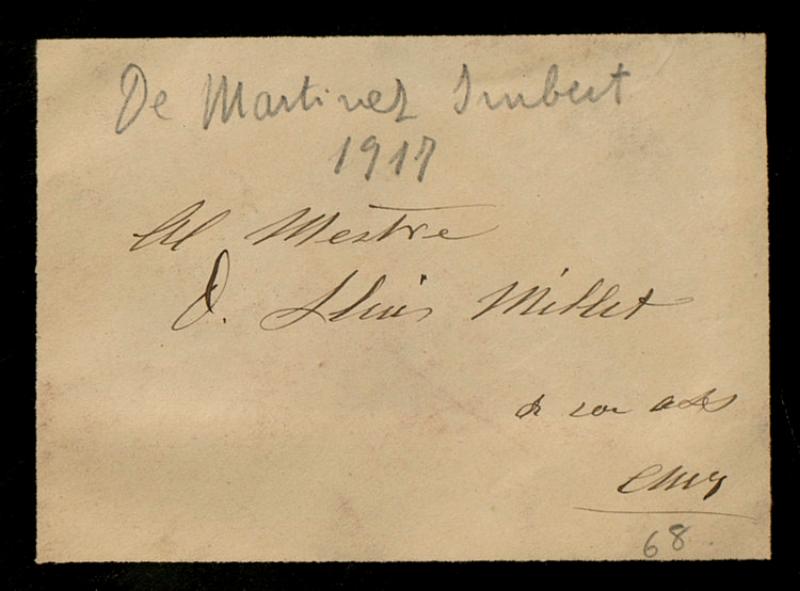 De Martinez Imbert
1917
Al Mestre
D. Lluis Millet
de son
68